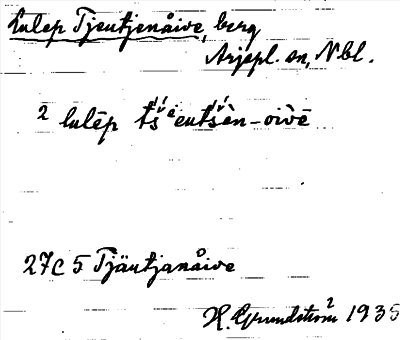 Lulep Tjeutjenåive, berg
Arjepl. sn, Nbl.
2 lulēp t́š́ᵉeut́š́èn-oiv̀ē
27C 5 Tjäutjanåive
H. Grundström 2 1935